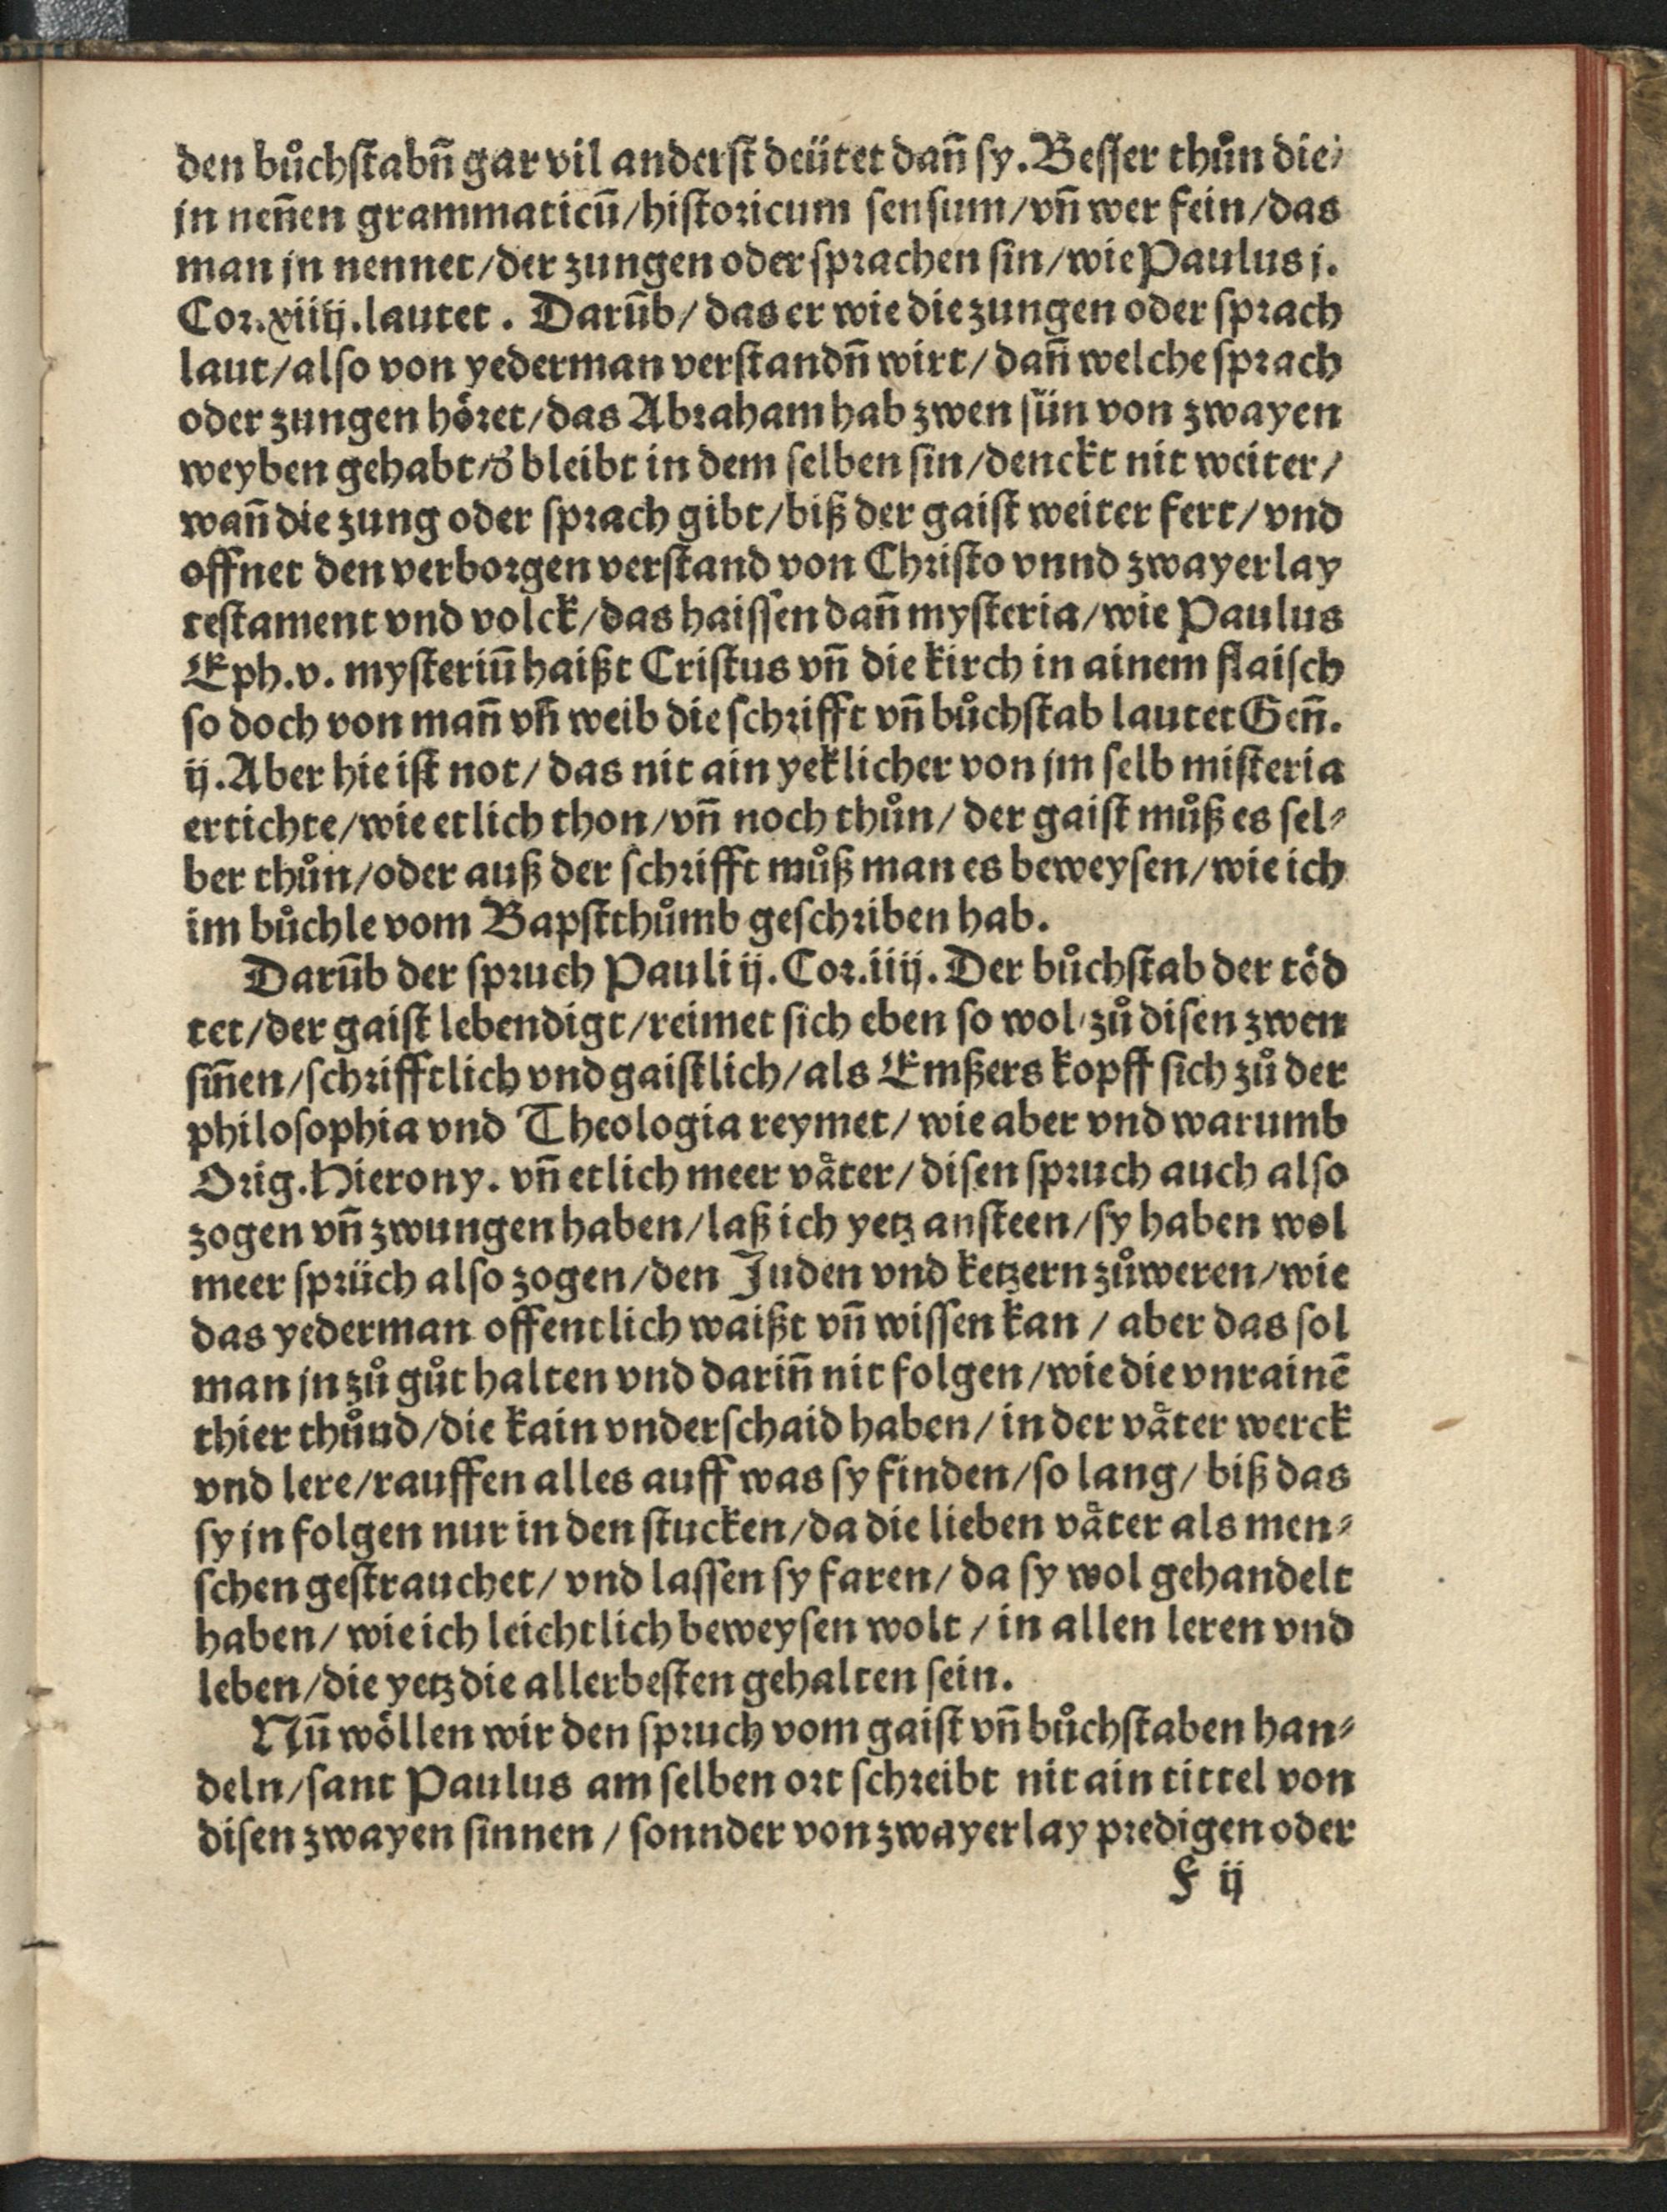 den bůchſtabn̄ gar vil anderſt deütet dan̄ ſy. Beſſer thůn die/
jn nen̄en grammaticū/hiſtoricum ſenſum/vn̄ wer fein/das
man jn nennet/der zungen oder ſprachen ſin/wie Paulus j.
Cor. xiiij. lautet. Darūb/ das er wie die zungen oder ſprach
laut/alſo von yederman verſtandn̄ wirt/ dan̄ welche ſprach
oder zungen hőret/das Abraham hab zwen ſün von zwayen
weyben gehabt/d̄ bleibt in dem ſelben ſin/denckt nit weiter/
wan̄ die zung oder ſprach gibt/biß der gaiſt weiter fert/ vnd
offnet den verborgen verſtand von Chriſto vnnd zwayerlay
teſtament vnd volck/das haiſſen dan̄ myſteria/wie Paulus
Eph. v. myſteriū haißt Criſtus vn̄ die kirch in ainem flaiſch
ſo doch von man̄ vn̄ weib die ſchrifft vn̄ bůchſtab lautet Gen̄.
ij. Aber hie iſt not/ das nit ain yeklicher von jm ſelb miſteria
ertichte/wie etlich thon/vn̄ noch thůn/ der gaiſt můß es ſel⸗
ber thůn/oder auß der ſchrifft můß man es beweyſen/wie ich
im bůchle vom Bapſtthůmb geſchriben hab.
Darūb der ſpruch Pauli ij. Cor. iiij. Der bůchſtab der tőd
tet/der gaiſt lebendigt/reimet ſich eben ſo wol zů diſen zwen
ſin̄en/ſchrifftlich vnd gaiſtlich/als Emßers kopff ſich zů der
philoſophia vnd Theologia reymet/ wie aber vnd warumb
Orig. Hierony. vn̄ etlich meer vaͤter/ diſen ſpruch auch alſo
zogen vn̄ zwungen haben/laß ich yetz anſteen/ſy haben wol
meer ſprüch alſo zogen/den Juden vnd ketzern zůweren/wie
das yederman offentlich waißt vn̄ wiſſen kan / aber das ſol
man jn zů gůt halten vnd darin̄ nit folgen/wie die vnrainē
thier thůnd/die kain vnderſchaid haben/ in der vaͤter werck
vnd lere/rauffen alles auff was ſy finden/ſo lang/ biß das
ſy jn folgen nur in den ſtucken/da die lieben vaͤter als men⸗
ſchen geſtrauchet/ vnd laſſen ſy faren/ da ſy wol gehandelt
haben/ wie ich leichtlich beweyſen wolt / in allen leren vnd
leben/die yetz die allerbeſten gehalten ſein.
Nū wőllen wir den ſpruch vom gaiſt vn̄ bůchſtaben han⸗
deln/ſant Paulus am ſelben ort ſchreibt nit ain tittel von
diſen zwayen ſinnen / ſonnder von zwayerlay predigen oder
F ij